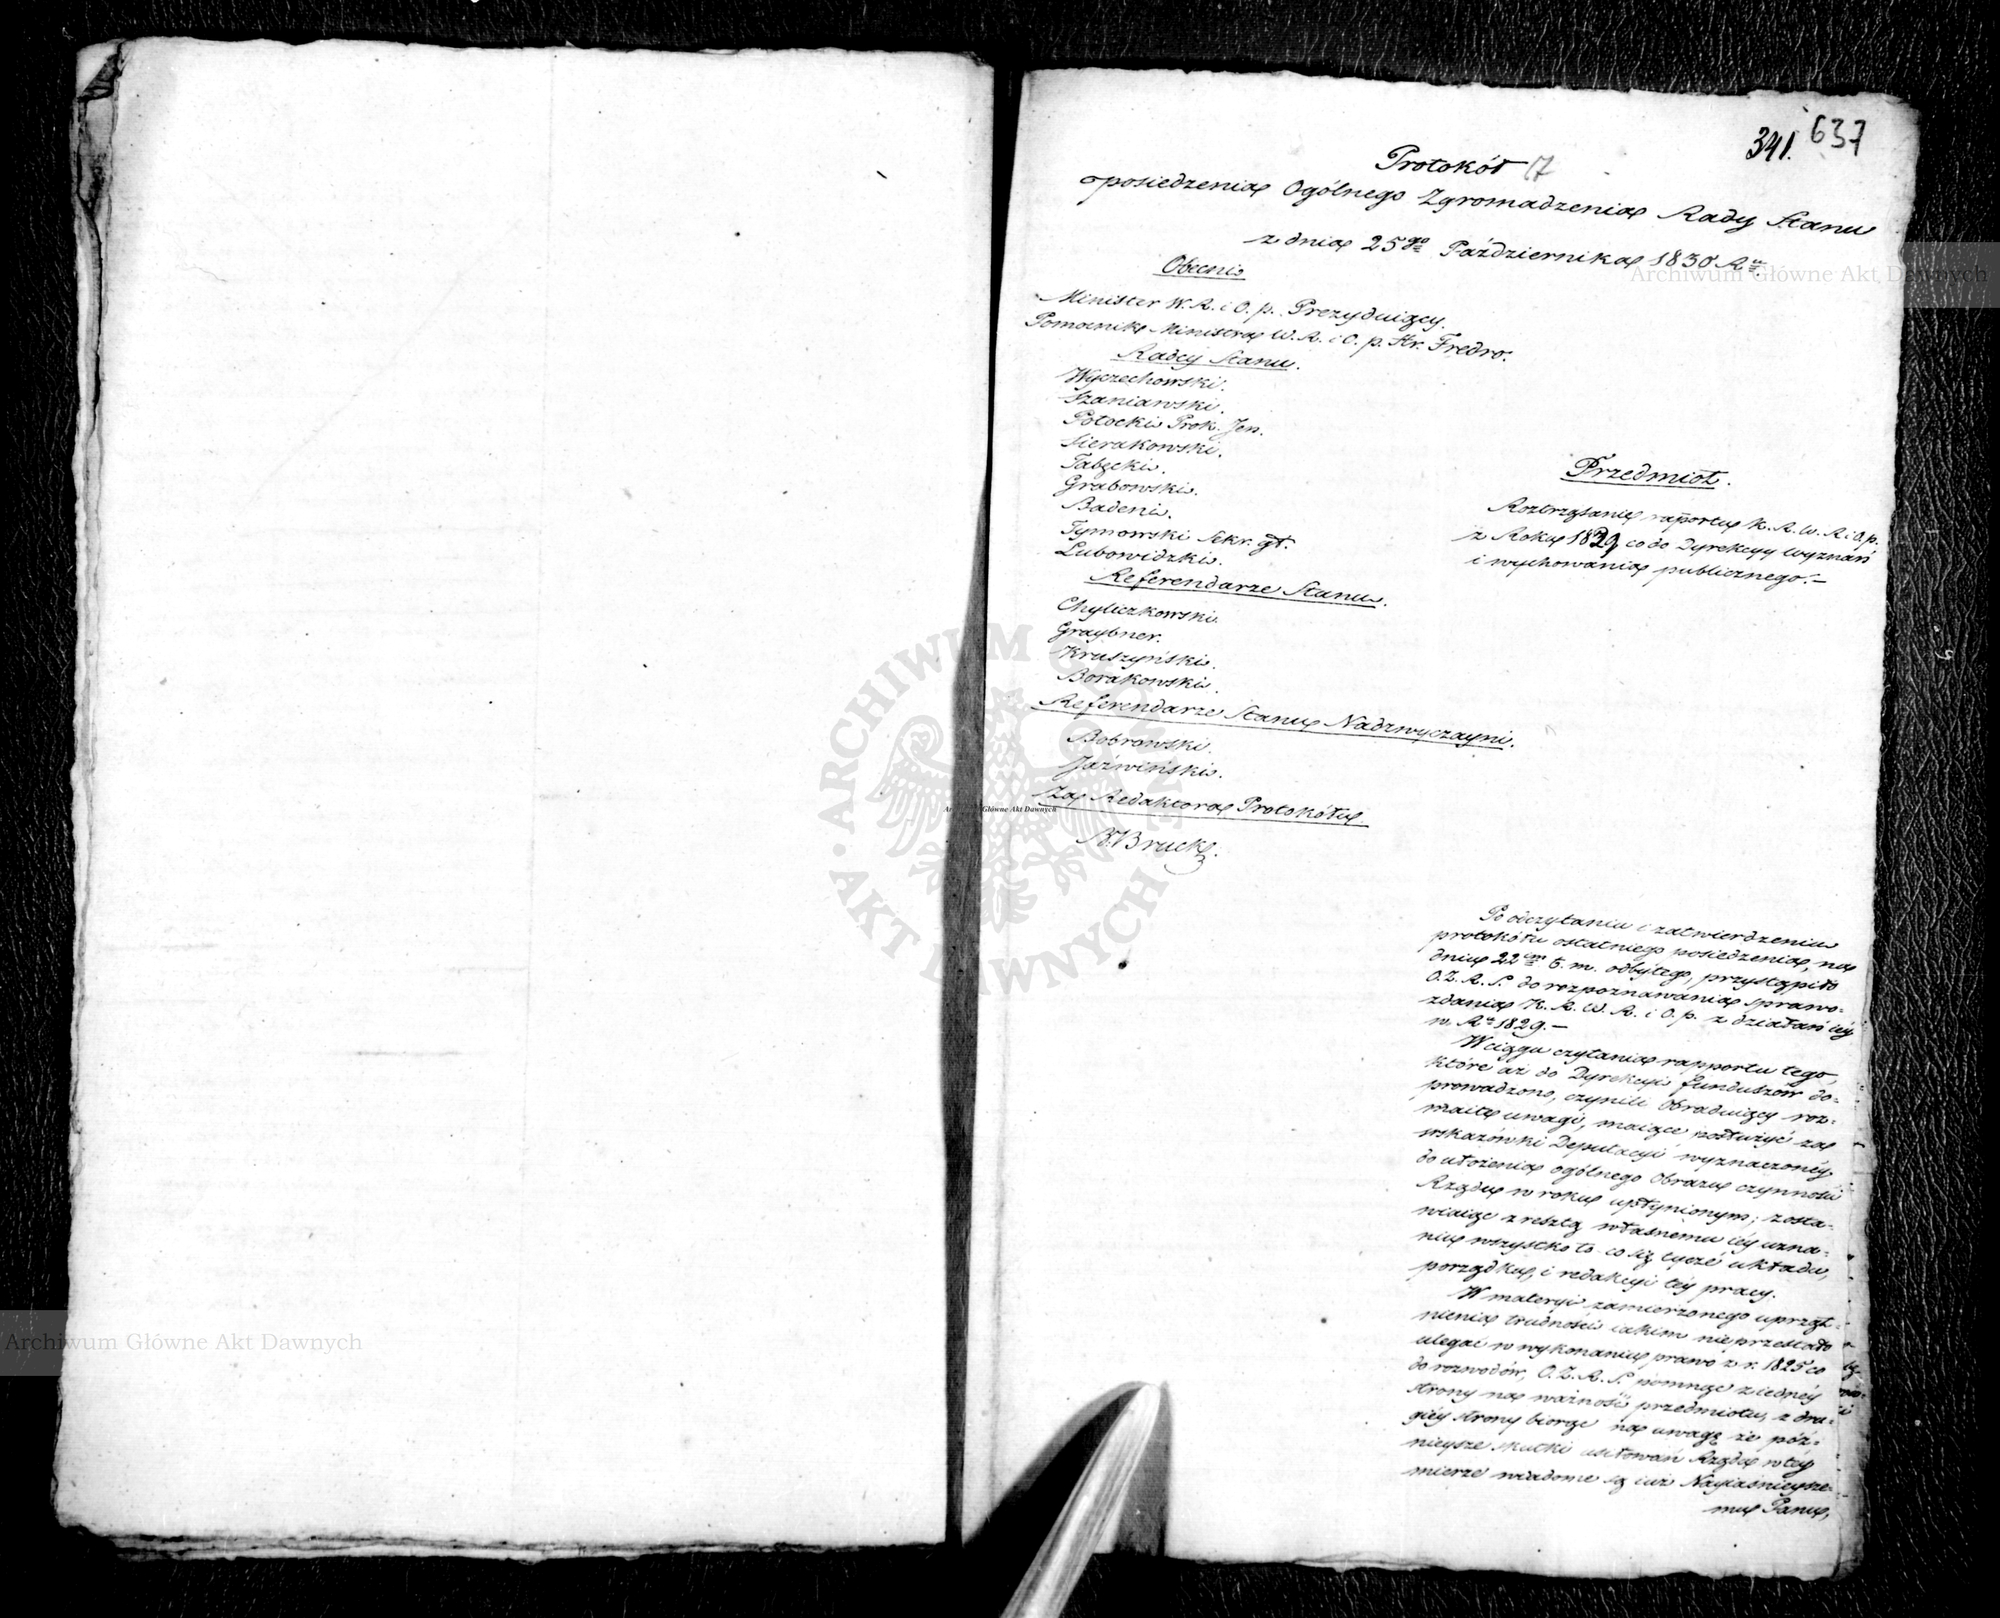 341. 637
Protokół 17
posiedzenia Ogólnego Zgromadzenia Rady Stanu
z dnia 25go Października 1830 Ru.
Obecni
Minister W. R. i O. p. Prezyduiący.
Pomocnik Ministra W. R. i O. p. Hr. Fredro.
Radcy Stanu.
Wyczechowski.
Szaniawski.
Potocki Prok. Jen.
Sierakowski.
Tabęcki.
Grabowski.
Badeni.
Tymowski Sekr. gł.
Lubowidzki.
Referendarze Stanu.
Chyliczkowski.
Graybner.
Kruszyński.
Borakowski.
Referendarze Stanu Nadzwyczayni.
Bobrowski.
Jaźwiński.
Za Redaktora Protokółu.
B. Bruck.
Przedmiot.
Roztrząsanie raportu K. R. W. R. i O. p.
z Roku 1829 co do Dyrekcyy Wyznań
i wychowania publicznego.–
Po odczytaniu i zatwierdzeniu
protokółu ostatniego posiedzenia, na
dniu 22im t. m. odbytego, przystąpiło
O. Z. R. S. do rozpoznawania sprawo-
zdania K. R. W. R. i O. p. z działań iéy
w Ru 1829.–
W ciągu czytania rapportu tego,
które aż do Dyrekcyi funduszów do-
prowadzono, czynili Obraduiący roz-
maite uwagi, maiące posłużyć za
wskazówki Deputacyi wyznaczonéy
do ułożenia ogólnego Obrazu czynności
Rządu w roku upłynionym; zosta-
wiaiąc zresztą własnemu iéy uzna-
niu wszystko to co się tycze układu,
porządku, i redakcyi téy pracy.
W materyi zamierzonego uprząt-
nienia trudności iakim nieprzestało
ulegać w wykonaniu prawo z r. 1825 co
do rozwodów, O. Z. R. S. pomnąc z iednéy
strony na ważność przedmiotu, z dru-
giéy strony biorąc na uwagę że póź-
nieysze skutki usiłowań Rządu w téy
mierze wiadome są iuż Nayiaśnieysze-
mu Panu,
Archiwum Główne Akt Dawnych
Archiwum Główne Akt Dawnych
Archiwum Główne Akt Dawnych
ARCHIWUM GŁÓWNE AKT DAWNYCH